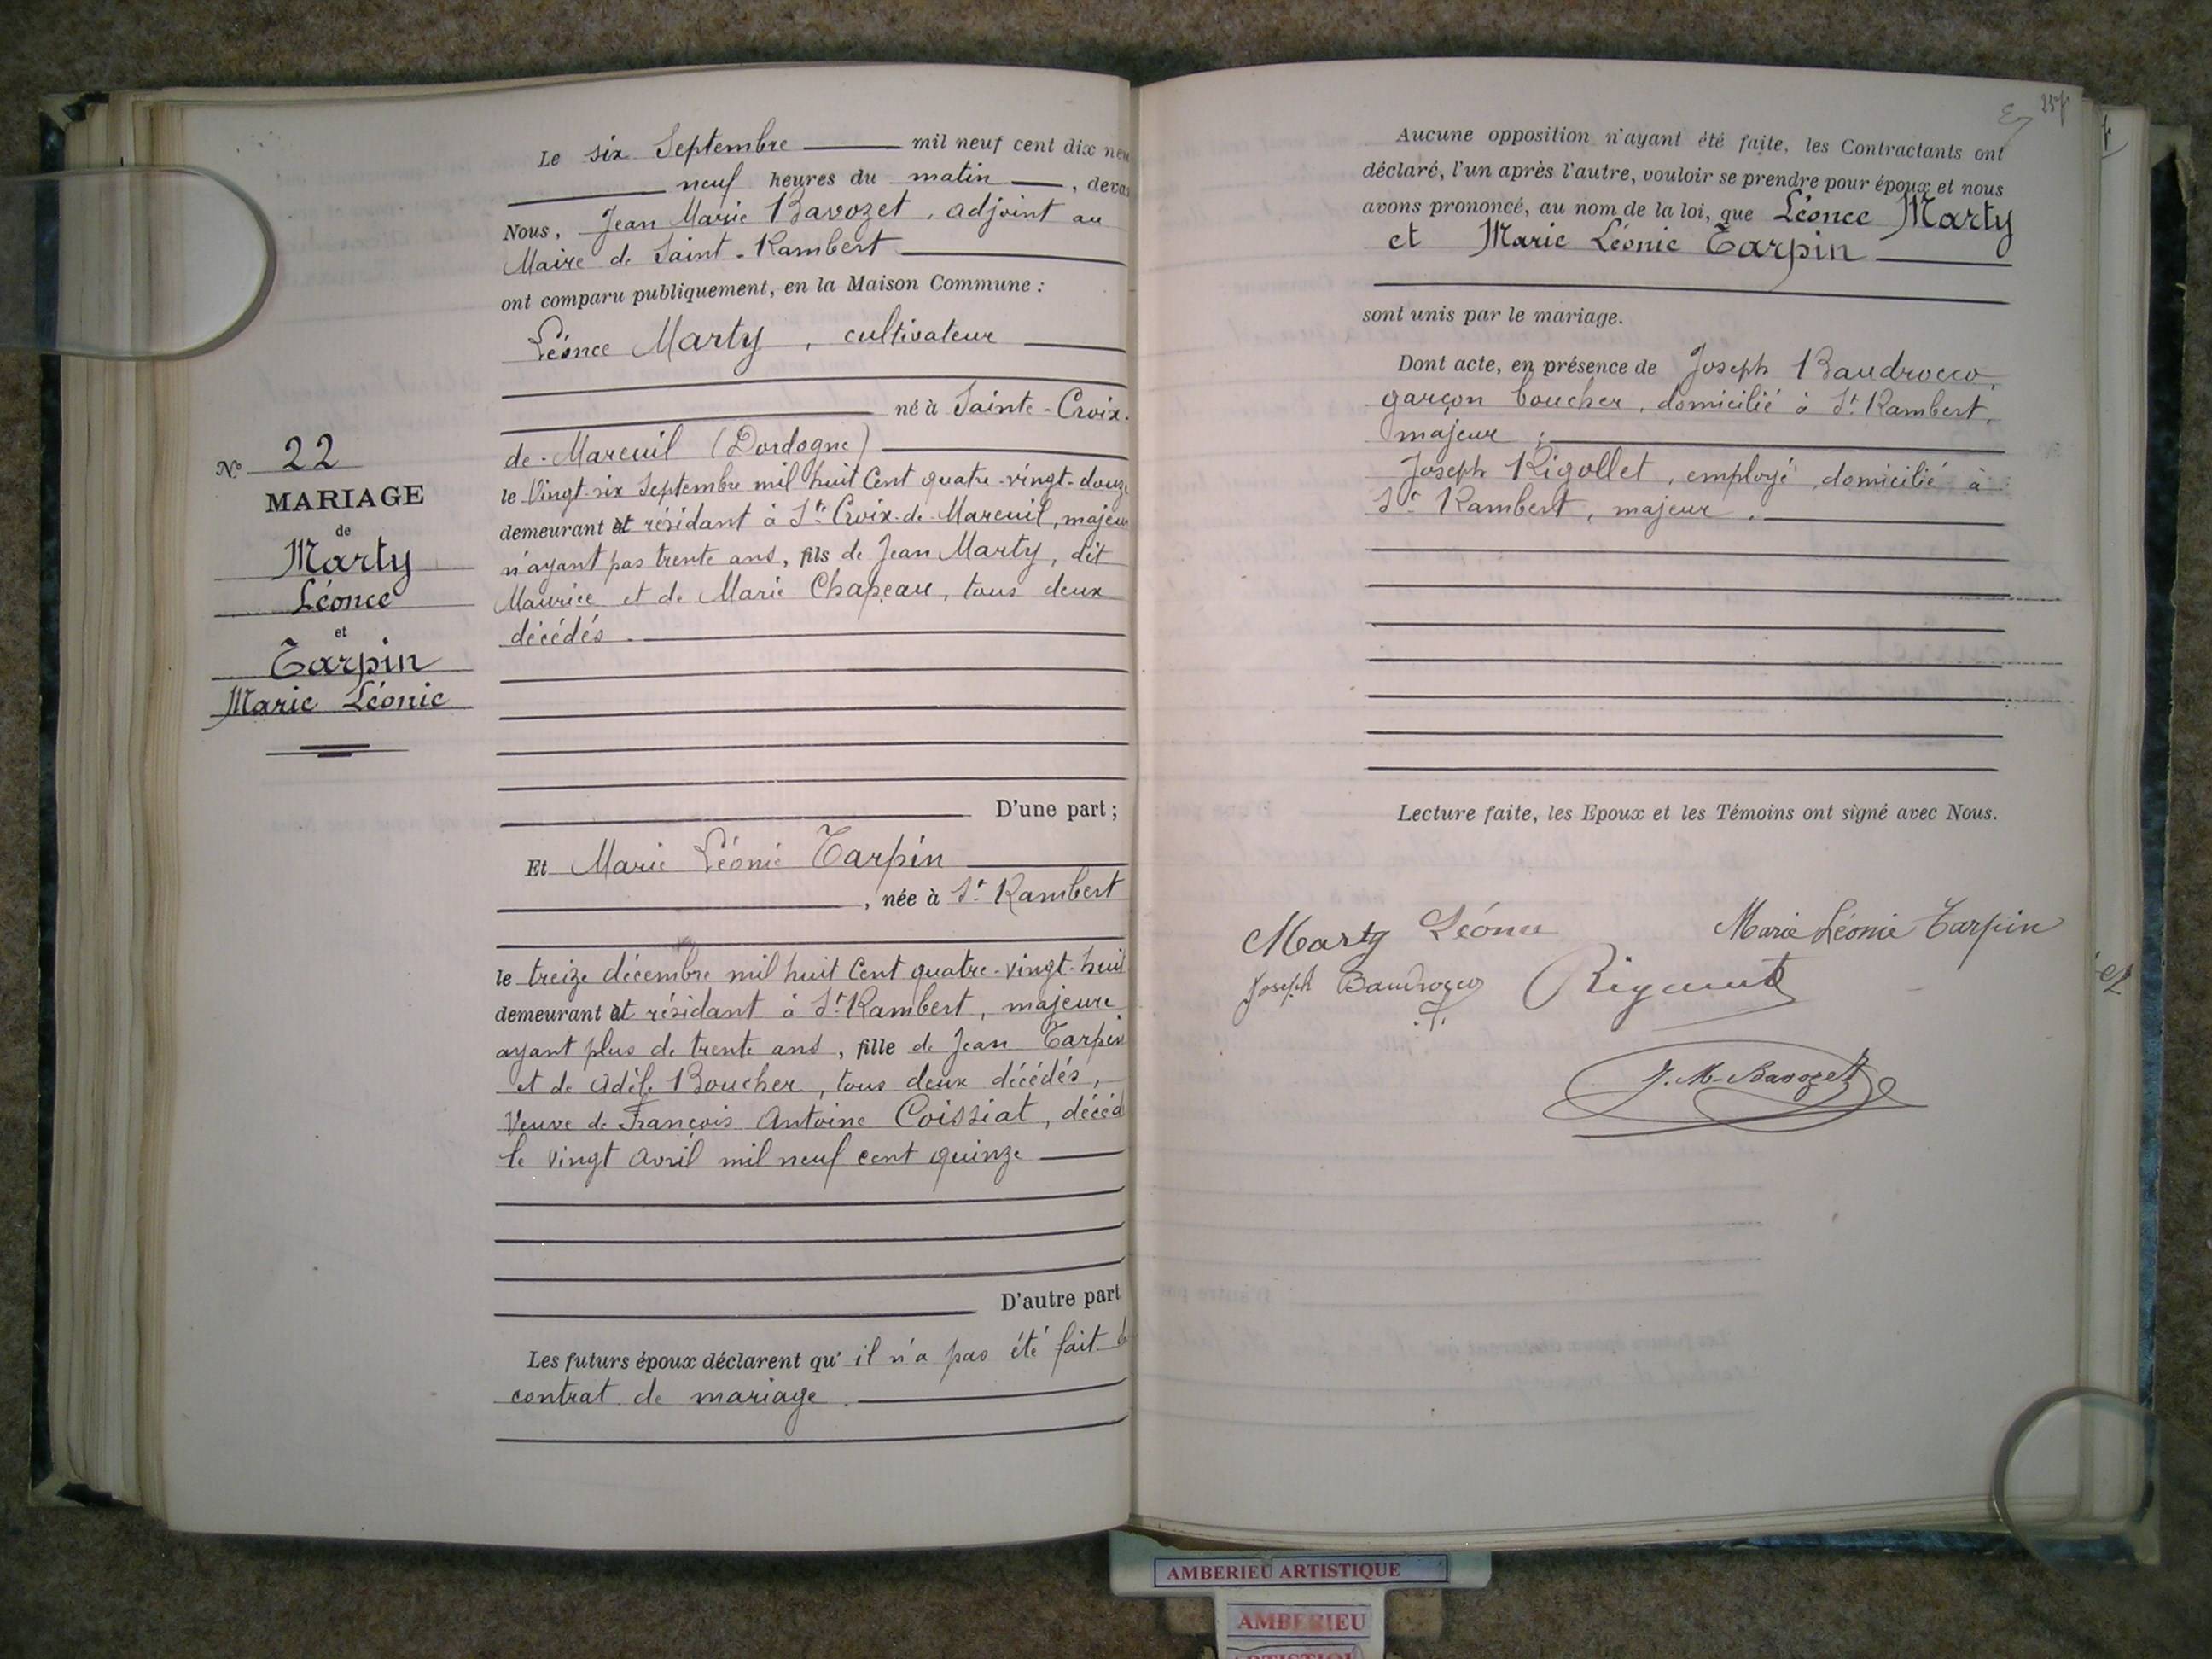 Le six Septembre mil neuf cent dix neu
neuf heures du matin, deva
Nous, Jean Marie Bavozet, adjoint au
Maire de Saint-Rambert
ont comparu publiquement, en la Maison Commune :
Léonce Marty, cultivateur
né à Sainte-Croix-
de-Mareuil (Dordogne)
le Vingt-six Septembre mil huit Cent quatre-vingt-douze
demeurant et résidant à Ste Croix-de-Mareuil, majeur
n'ayant pas trente ans, fils de Jean Marty, dit
Maurice et de Marie Chapeau, tous deux
décédés.
No 22
MARIAGE
de
Marty
Léonce
et
Tarpin
Marie Léonie
D'une part ;
Et Marie Léonie Tarpin
, née à St Rambert
le treize décembre mil huit Cent quatre-vingt-huit
demeurant et résidant à St Rambert, majeure
ayant plus de trente ans, fille de Jean Tarpin
et de Adèle Boucher, tous deux décédés,
Veuve de François Antoine Coissiat, décéd
le vingt avril mil neuf cent quinze
D'autre part
Les futurs époux déclarent qu'il n'a pas été fait
contrat de mariage.
257
Aucune opposition n'ayant été faite, les Contractants ont
déclaré, l'un après l'autre, vouloir se prendre pour époux et nous
avons prononcé, au nom de la loi, que Léonce Marty
et Marie Léonie Tarpin
sont unis par le mariage.
Dont acte, en présence de Joseph Baudrocco,
garçon boucher, domicilié à St Rambert,
majeur ;
Joseph Rigollet, employé, domicilié à
St Rambert, majeur.
Lecture faite, les Epoux et les Témoins ont signé avec Nous.
Marty Léonce Marie Léonie Tarpin
Joseph Baudrocco
J. M. Bavozet
AMBERIEU ARTISTIQUE
AMBERIEU
ARTISTIQUE